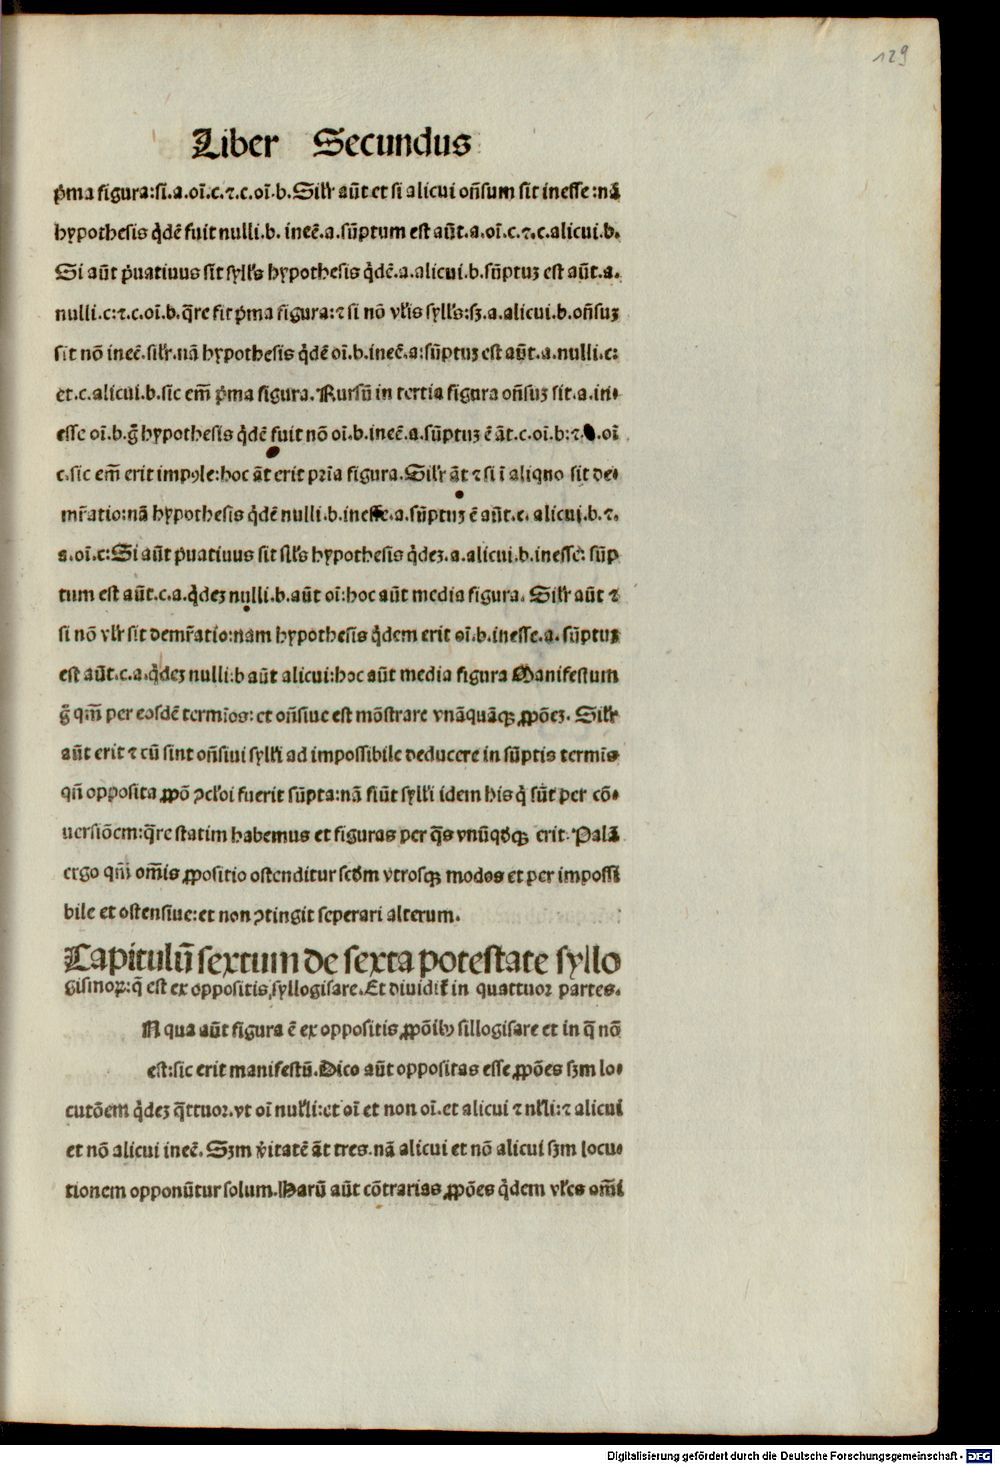 129
Liber Secundus
p̓ma figura:si.a.oī.c.⁊.c.oī.b.Silr̓ aūt et si alicui oñsum sit inesse:nā
hypothesis q̓dē fuit nulli.b. ineē.a.sūptum est aūt.a.oī.c.⁊.c.alicui.b.
Si aūt p̓uatiuus sit syll̓s hypothesis q̓dē.a.alicui.b.sūptuȝ est aūt.a.
nulli.c:⁊.c.oī.b.q̄re fit p̓ma figura:⁊ si nō vl̓is syll̓s:sȝ.a.alicui.b.oñsuȝ
sit nō ineē.silr̓.nā hypothesis q̓dē oī.b.ineē.a:sūptuȝ est aūt.a.nulli.c:
et.c.alicui.b.sic em̄ p̓ma figura.Rursū in tertia figura oñsuȝ sit.a.in-
esse oī.b.g̃ hypothesis q̓dē fuit nō oī.b.ineē.a.sūptuȝ ē āt.c.oī.b:⁊. .oī
c.sic em̄ erit impꝯle:hoc āt erit prīa figura.Silr̓ āt ⁊ si ī aliquo sit de-
mr̄atio:nā hypothesis q̓dē nulli.b.inesse.a.sūptuȝ ē aūt.c. alicui.b.⁊.
a.oī.c:Si aūt p̓uatiuus sit sill̓s hypothesis q̓deȝ.a.alicui.b.inesse: sūp
tum est aūt.c.a.q̓deȝ nulli.b.aūt oī:hoc aūt media figura. Silr̓ aūt ⁊
si nō vlr̓ sit demr̄atio:nam hypothesis q̓dem erit oī.b.inesse.a. sūptuȝ
est aūt.c.a.q̓deȝ nulli:b aūt alicui:hoc aūt media figura Manifestum
g̃ qm̄ per eosdē termīos: et oñsiue est mōstrare vnāquāqꝫ ꝓpōeȝ. Silr̓
aūt erit ⁊ cū sint oñsiui syll̓i ad impossibile deducere in sūptis termīs
qn̄ opposita ꝓpō ꝯcl̓oi fuerit sūpta:nā fiūt syll̓i idem his q̓ sūt per cō-
uersiōem:q̄re statim habemus et figuras per q̄s vnūqdqꝫ erit. Palā
ergo qm̄ om̄is ꝓpositio ostenditur scdm vtrosqꝫ modos et per impossi
bile et ostensiue:et non ꝯtingit seperari alterum.
Capitulū sextum de sexta potestate syllo
gismoꝝ:q̄ est ex oppositis syllogisare.Et diuidit̓ in quattuor partes.
N qua aūt figura ē ex oppositis ꝓpōibꝰ sillogisare et in q̄ nō
est:sic erit manifestū.Dico aūt oppositas esse ꝓpōes sȝm lo-
cutōem q̓deȝ q̄ttuor.vt oī null̓i:et oī et non oī.et alicui ⁊ nl̓li:⁊ alicui
et nō alicui ineē. Sȝm v̓itatē āt tres.nā alicui et nō alicui sȝm locu-
tionem opponūtur solum.Harū aūt cōtrarias ꝓpōes q̓dem vl̓es om̄i
Digitalisierung gefördert durch die Deutsche Forschungsgemeinschaft - DFG